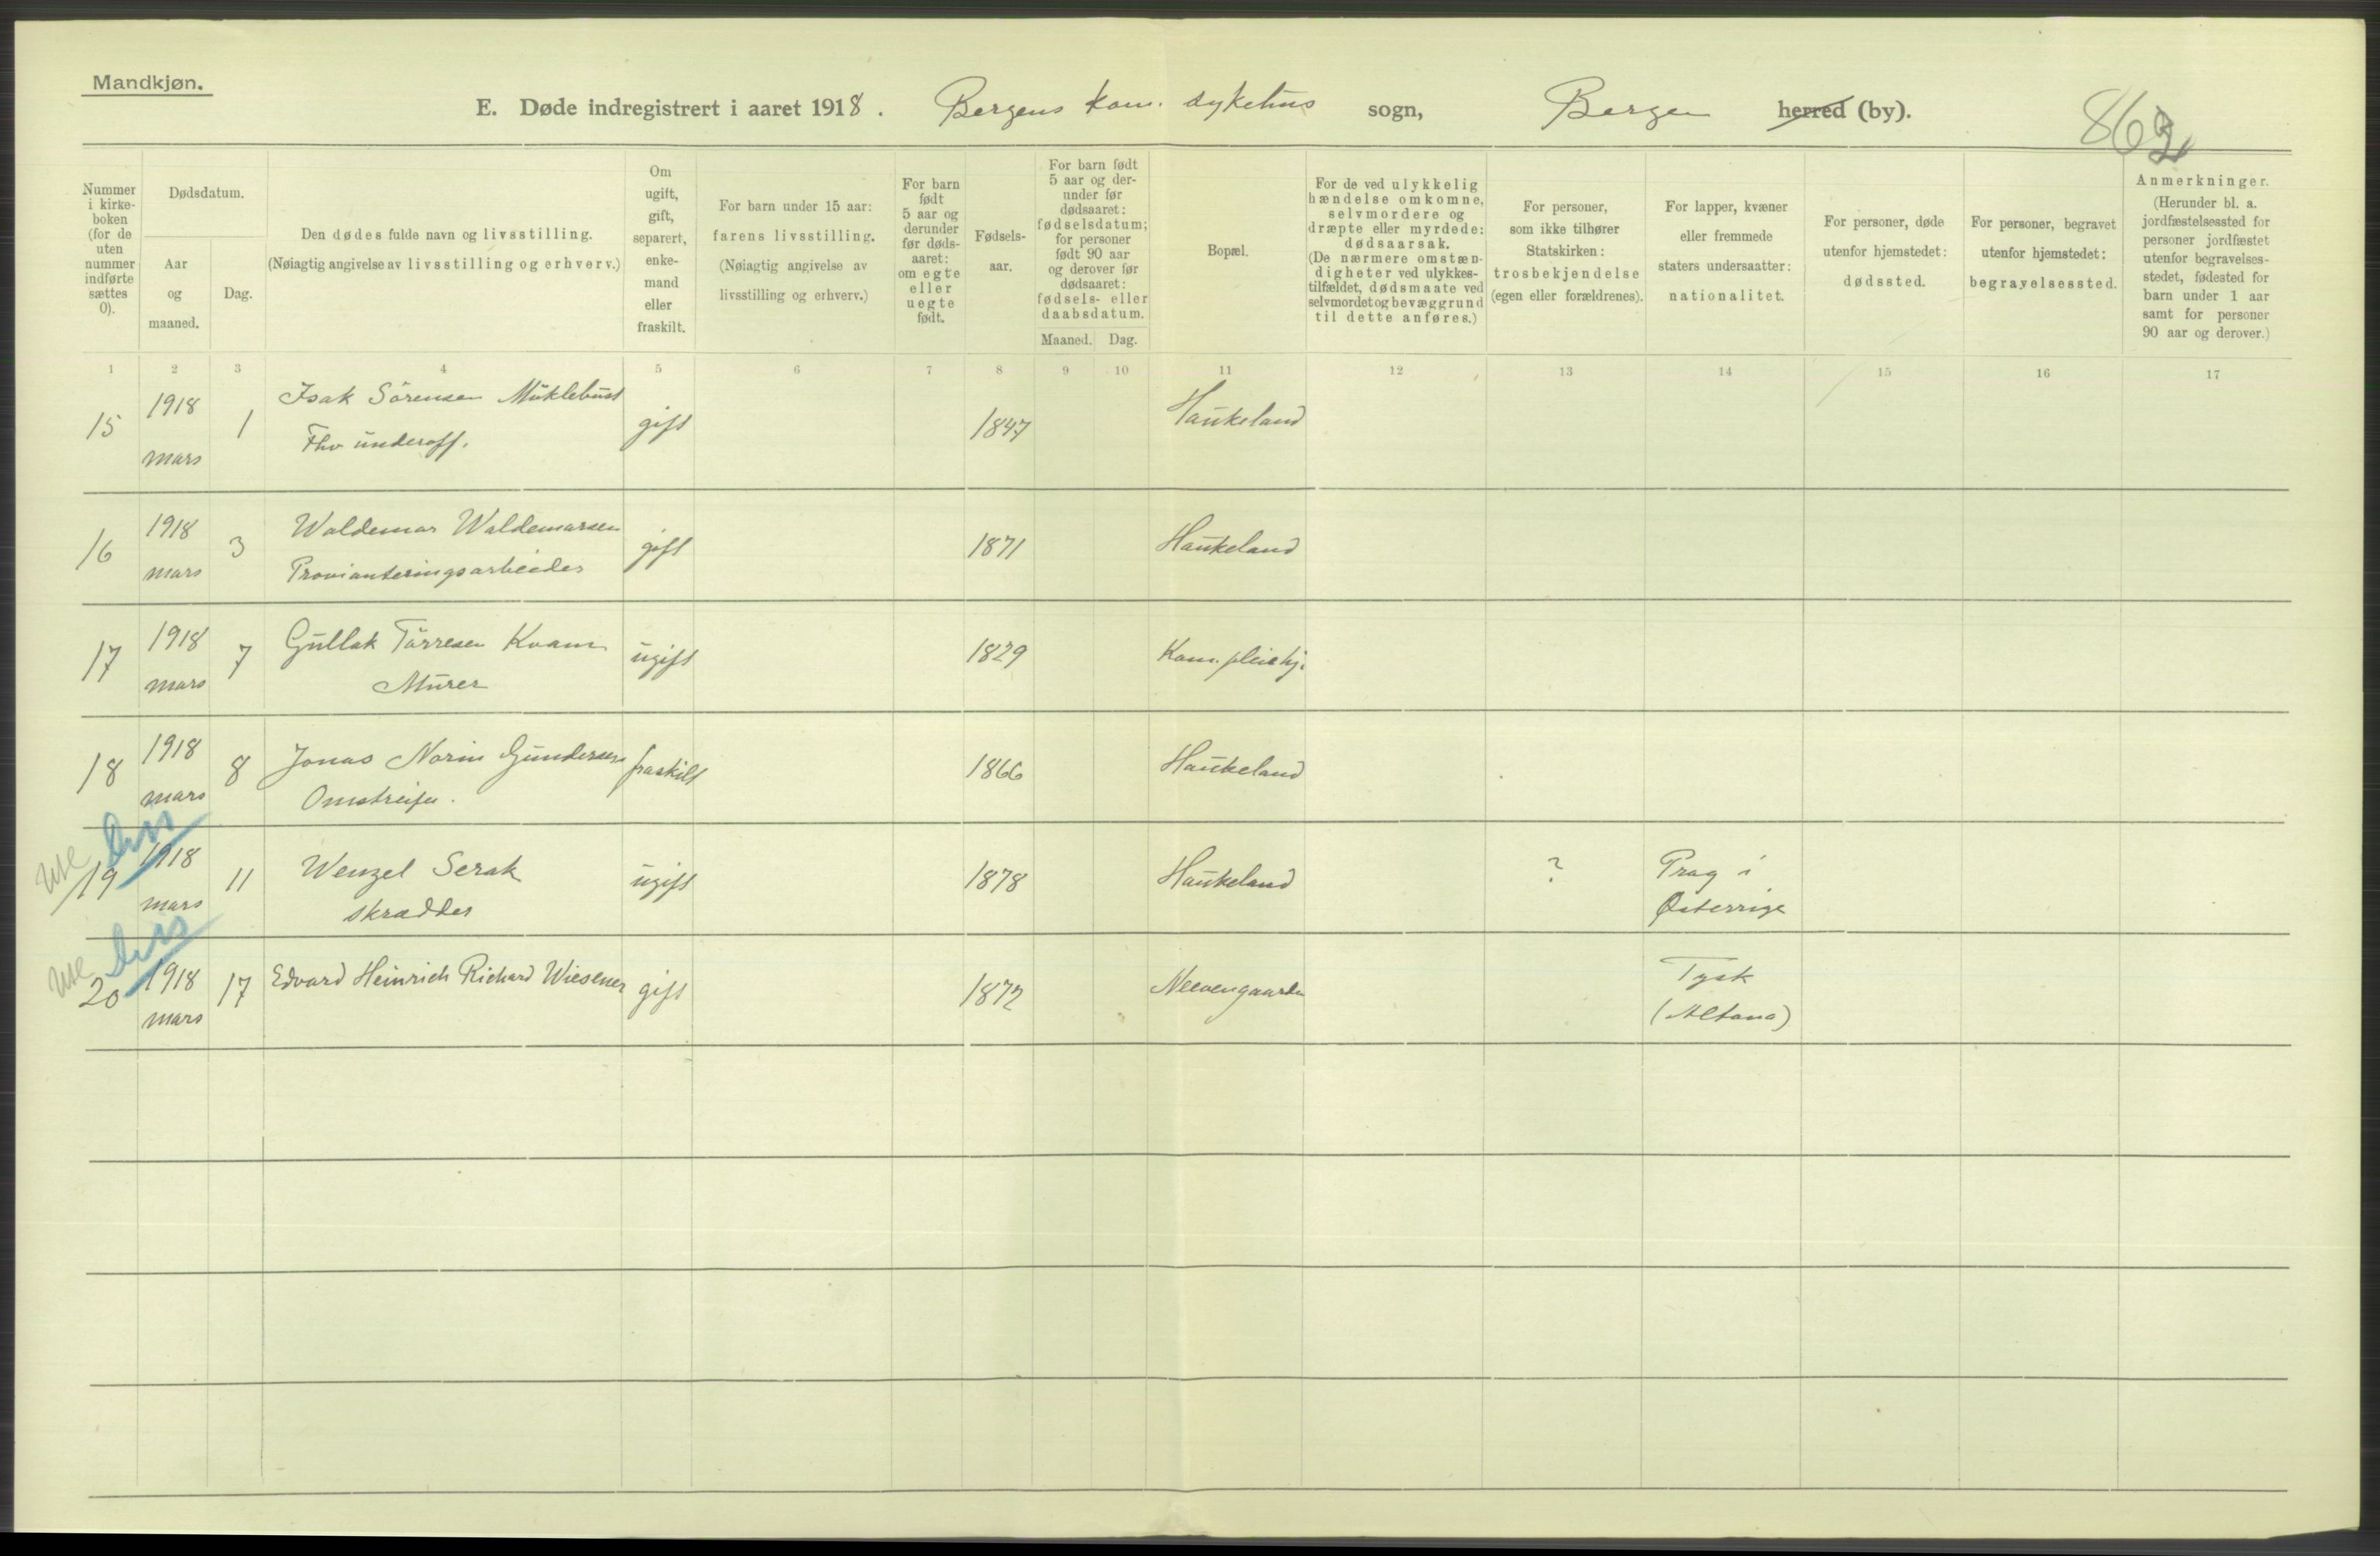 Mandkjøn.
E. Døde indregistrert i aaret 1918. Bergens kom. sykehus sogn, Bergen herred (by).
862
Nummer i kirkeboken (for de uten nummer indførte sættes 0).
Dødsdatum.
Aar og maaned.
Dag.
Den dødes fulde navn og livsstilling.
(Nøiagtig angivelse av livsstilling og erhverv.)
Om ugift, gift, separert, enkemand eller fraskilt.
For barn under 15 aar: farens livsstilling.
(Nøiagtig angivelse av livsstilling og erhverv.)
For barn født 5 aar og derunder før dødsaaret: om egte eller uegte født.
Fødselsaar.
For barn født 5 aar og derunder før dødsaaret: fødselsdatum; for personer født 90 aar og derover før dødsaaret: fødsels- eller daabsdatum.
Maaned. Dag.
Bopæl.
For de ved ulykkelig hændelse omkomne, selvmordere og dræpte eller myrdede: dødsaarsak.
(De nærmere omstændigheter ved ulykkestilfældet, dødsmaate ved selvmordet og bevæggrund til dette anføres.)
For personer, som ikke tilhører Statskirken: trosbekjendelse (egen eller forældrenes).
For lapper, kvæner eller fremmede staters undersaatter: nationalitet.
For personer, døde utenfor hjemstedet: dødssted.
For personer, begravet utenfor hjemstedet: begravelsessted.
Anmerkninger.
(Herunder bl. a. jordfæstelsessted for personer jordfæstet utenfor begravelsesstedet, fødested for barn under 1 aar samt for personer 90 aar og derover.)
1 2 3 4 5 6 7 8 9 10 11 12 13 14 15 16 17
15 1918 1 Isak Sörensen Myklebust gift 1847 Haukeland
mars Fhv underoff.
16 1918 3 Waldemar Waldemarsen gift 1871 Haukeland
mars Provianteringsarbeider
17 1918 7 Gullak Törresen Kvam ugift 1829 Kom. pleiehj.
mars Murer
18 1918 8 Jonas Norin Gundersen fraskilt 1866 Haukeland
mars Omstreifer.
19 1918 11 Wenzel Serak ugift 1878 Haukeland ? Prag i
mars skrædder Østerrige
20 1918 17 Edvard Heinrich Richard Wiesener gift 1872 Neevengaarden Tysk
mars (Altona)